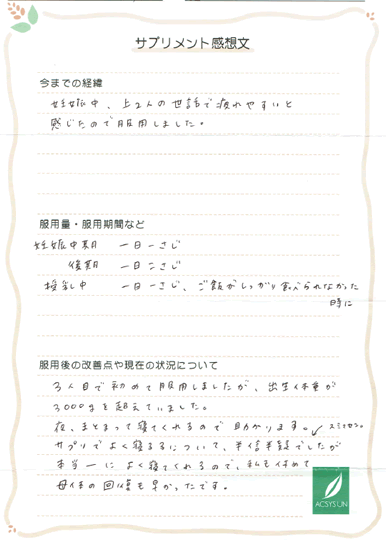 サプリメント感想文
今までの経緯
妊娠中、上2人の世話で疲れやすいと
感じたので服用しました。
服用量・服用期間など
妊娠中期 一日一さじ
後期 一日二さじ
授乳中 一日一さじ、ご飯がしっかり食べられなかった
時に
服用後の改善点や現在の状況について
3人目で初めて服用しましたが、出生体重が
3000gを超えていました。
夜、まとまって寝てくれるので助かります。
スミマセン。
サプリでよく寝るについて、半信半疑でしたが
本当によく寝てくれるので、私も含めて
母体の回復も早かったです。
ACSYSUN